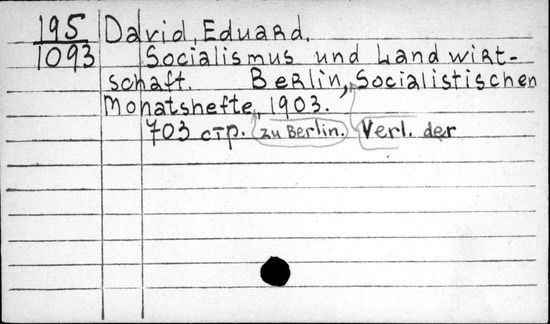 195 David, Eduard.
1093 Socialismus und Landwirt-
schaft. Berlin, Socialistischen
Monatshefte, 1903.
703 стр. zu Berlin. Verl. der